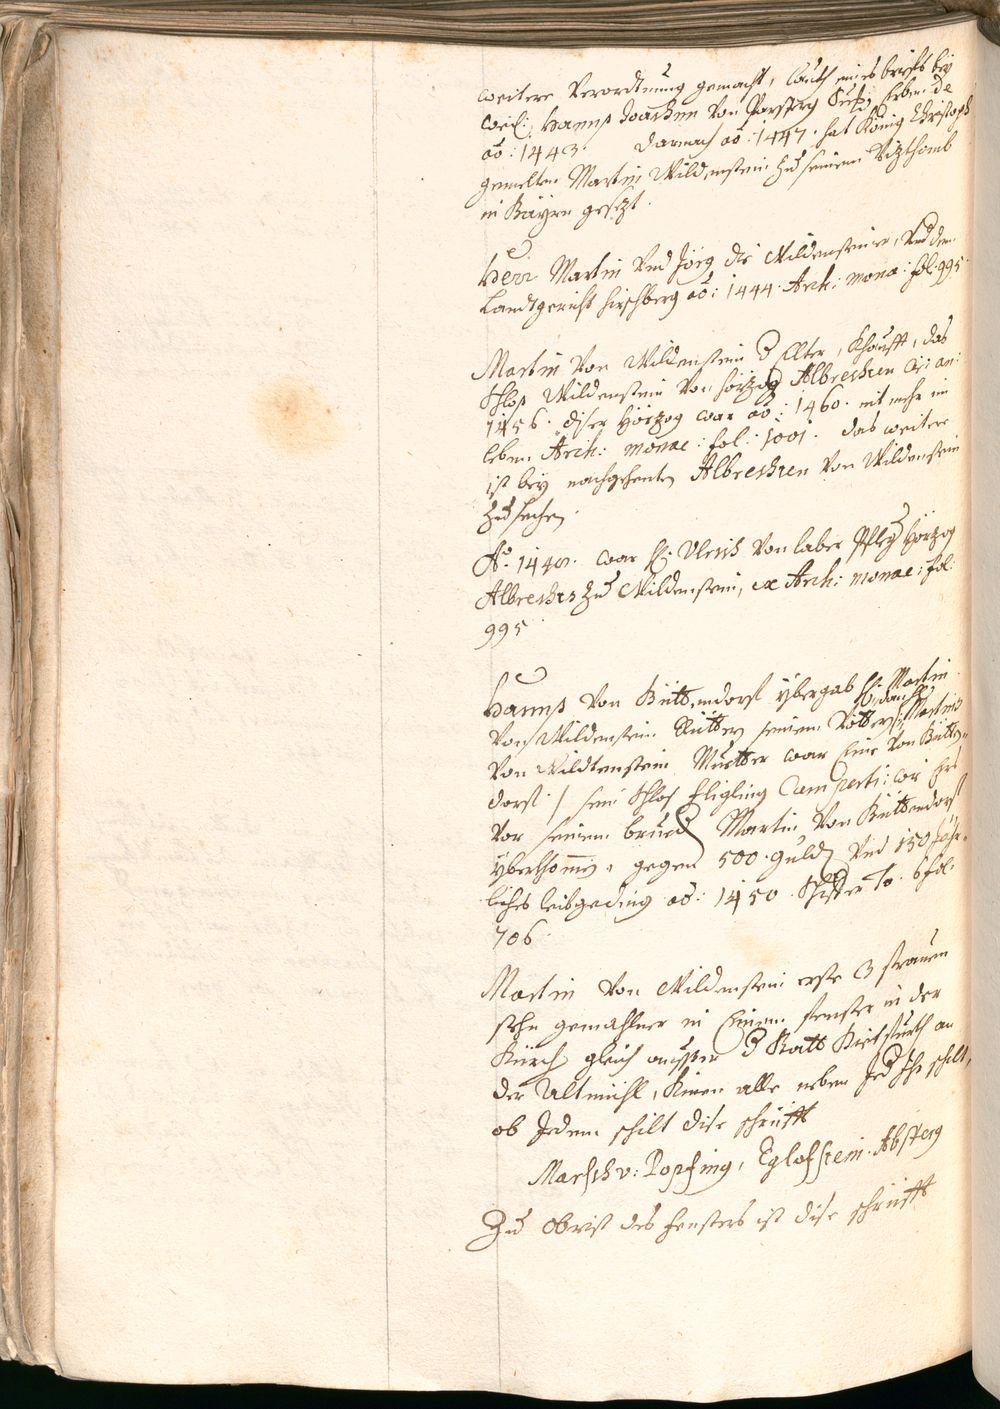 weitere Verordtnung gemacht, lauth eines briefs bey
weil: Hanns Joachim von Parsperg Seel: Erben de
aõ: 1443. Darnach aõ: 1447. hat König Christoph
gemelten Martin Wildenstein zu seinem Vizthomb
in Bayrn gesezt.
Herr Martin Vnd Jörg die Wildensteiner, Vnd dem
Landtgericht Hirschberg aõ: 1444. Arch: monac: fol: 995.
Martin Von Wildenstein d Elter, Khaufft, das
Schloß Wildenstein Von Hörzog Albrechten an:
1456. diser Hörzog war aõ: 1460. nit mehr im
leben Arch: monac: fol: 1001. das weitere
ist bey nachgehenten Albrechten Von Wildenstein
zu sechen.
Aõ. 1440. war H: Vlrich Von laber Pfleger Hörzog
Albrechts zu Wildenstein, ex Arch: monac: fol:
995
Hanns Von Büttendorf ybergab H: Martin
Von Wildenstein Rütter seinem Vöttern, Martins
Von Wildtenstein Muetter war Eine Von Bütten-
dorf / sein Schlos Eligling Cum pert: wie Ers
Vor seinem brueder Martin Von Büttendorf
yberkhomen, gegen 500. guld Vnd 150 Jähr-
liches leibgeding aõ: 1450. To. 6 fol:
706.
Martin Von Wildenstein erste 3 frauen
sehn gemahlner in Einem fenster in der
Kürch gleich ausser d Statt an
der Altmühl, Knien alle neben Jed Ihr schilt,
ob Jedem schilt dise schrüfft
Marsch v: Popfing, Eglofstein. Absperg
Zu obrist des fensters ist dise schrüfft